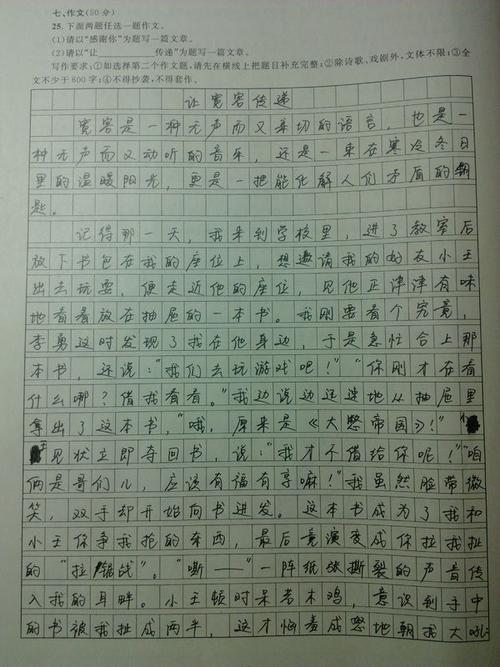 七、作文(50分)
25.下面两题任选一题作文。
(1)请以“感谢你”为题写一篇文章。
(2)请以“让 传递”为题写一篇文章。
写作要求:①如选择第二个作文题,请先在横线上把题目补充完整;②除诗歌、戏剧外,文体不限;③全
文不少于600字;④不得抄袭,不得套作。
让宽容传递
宽容是一种无声而又亲切的语言,也是一
种无声而又动听的音乐,还是一束在寒冷冬日
里的温暖阳光,更是一把能化解人们矛盾的钥
匙。
记得那一天,我来到学校里,进了教室后
放下书包在我的座位上,想邀请我的好友小王
出去玩耍,便走近他的座位,见他正津津有味
地看着放在抽屉的一本书。我刚要看个究竟,
李勇这时发现了我在他身边,于是急忙合上那
本书,还说:“我们去玩游戏吧!”“你刚才在看
什么哪?借我看看。”我边说边迅速地从抽屉里
拿出了这本书,“哦,原来是《大憨帝国》!”小
王见状立即夺回书,说:“我才不借给你呢!”“咱
俩是哥们儿,应该有福有享嘛!”我虽然脸带微
笑,双手却开始向书进发。这本书成为了我和
小王你争我抢的东西,最后竟演变成你拉我扯
的“拉锯战”。“嘶——”一阵纸张撕裂的声音传
入我的耳畔。小王顿时呆若木鸡,意识到手中
的书被我扯成两半,这才恼羞成怒地朝我大吼